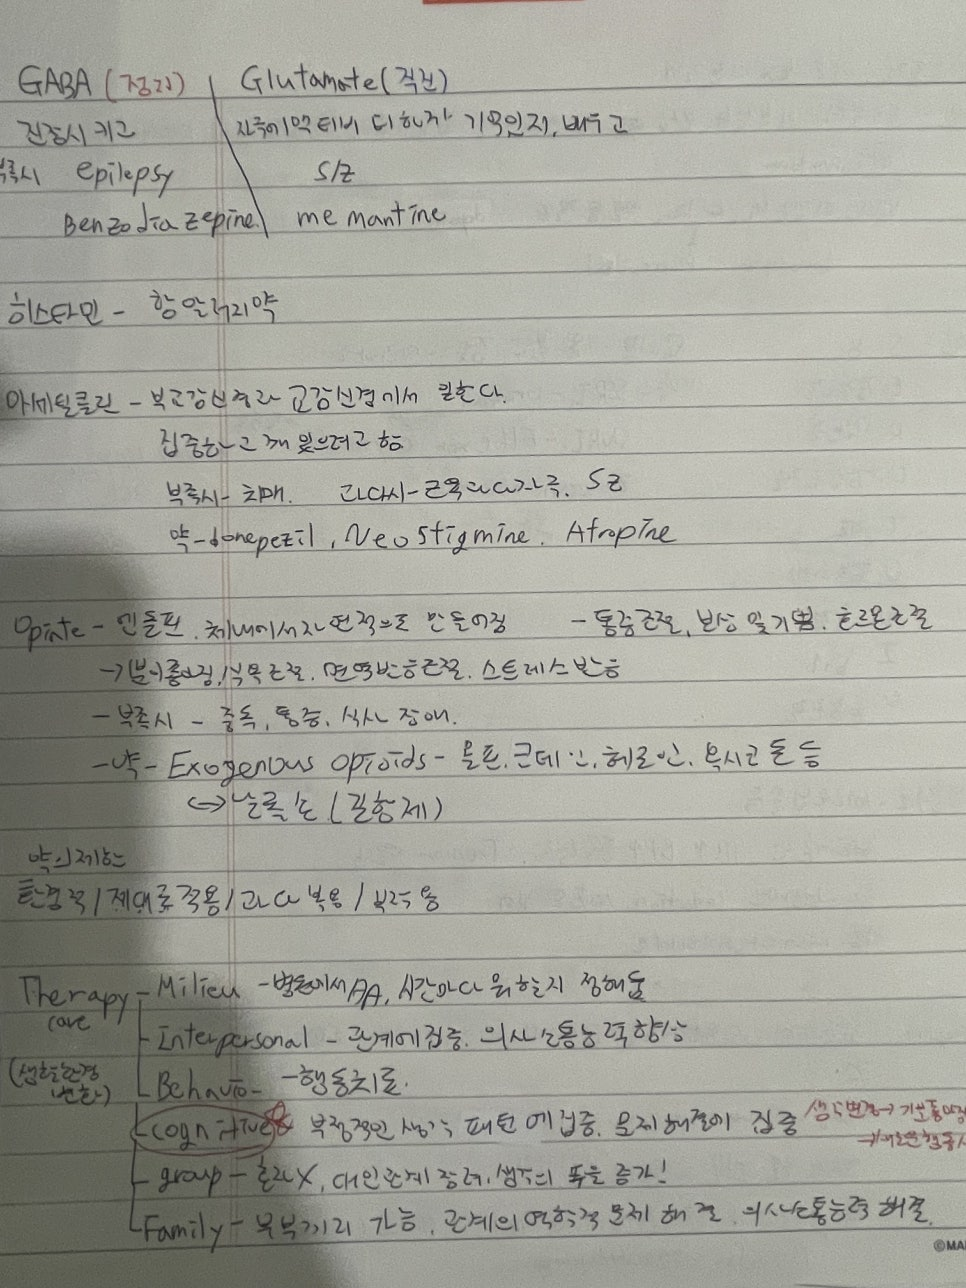 GABA (정지) Glutamate (직진)
진정시키고 기억인지, 배우고
부족시 epilepsy S/Z
Benzodiazepine memantine
히스타민 - 항알러지약
아세틸콜린 - 부교감신경과 교감신경에서 일한다.
집중하고 깨 있으려고 함.
부족시 - 치매. 과다시 - 근육과다자극. SZ
약 - donepezil, Neostigmine. Atropine
Opiate - 엔돌핀. 체내에서 자연적으로 만들어짐 - 통증조절, 보상 일기쁨. 호르몬조절
→ 기분이 좋아짐, 식욕조절. 면역반응조절. 스트레스 반응
- 부족시 - 중독, 통증, 식사장애.
- 약 - Exogenous opioids - 몰핀. 코데인. 헤로인. 옥시코돈 등
↔ 날록손 (길항제)
약의 제한은
환경적 / 제대로 적용 / 과다복용 / 부작용
Therapy - Milieu - 병원에서 AA, 시간마다 뭐 할지 정해둠
care Interpersonal - 관계에 집중. 의사소통능력향상
(생활환경 변화) Behavio - - 행동치료.
Cognitive 부정적인 생각 패턴에 집중. 문제해결에 집중 생각변경 →
group - 혼자X, 대인관계 장려, 생각의 폭을 증가!
Family - 부부끼리 가능. 관계의 역학적 문제 해결. 의사소통능력 해결.